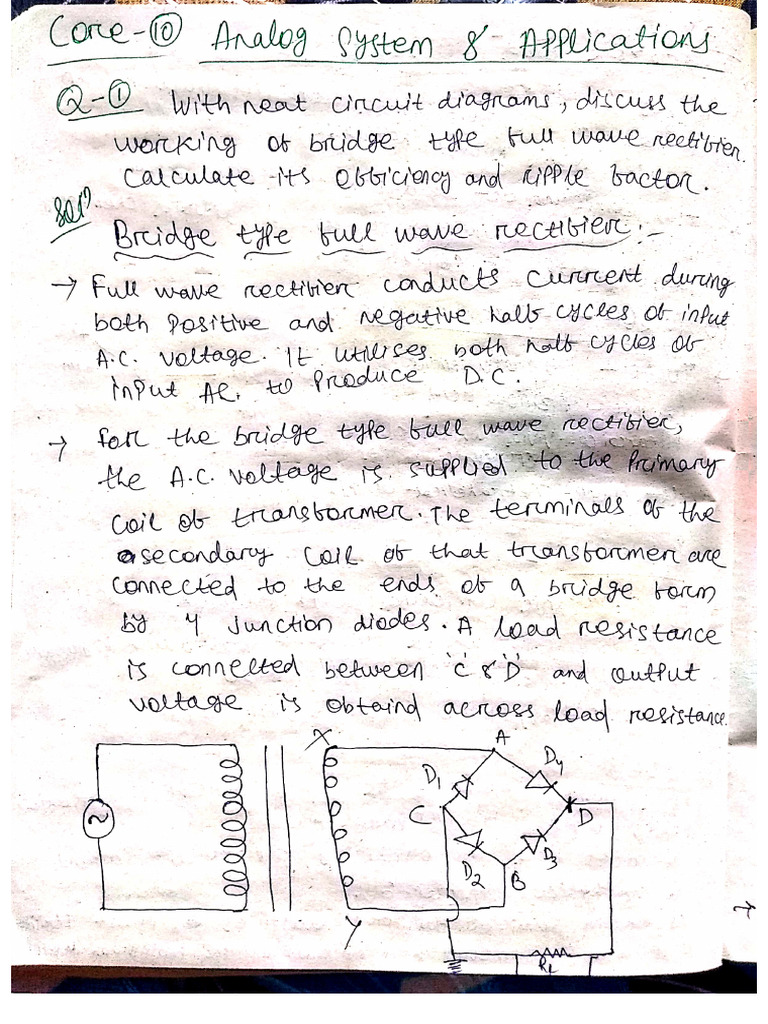 Core-⑩ Analog System & Applications
Q-① With neat circuit diagrams, discuss the
working of bridge type full wave rectifier.
Calculate its efficiency and ripple factor.
Solⁿ.
Bridge type full wave rectifier:-
→ Full wave rectifier conducts current during
both positive and negative half cycles of input
A.C. voltage. It utilises both half cycles of
input AC. to produce D.C.
→ for the bridge type full wave rectifier,
the A.C. voltage is supplied to the primary
coil of transformer. The terminals of the
secondary coil of that transformer are
connected to the ends of a bridge form
by 4 junction diodes. A load resistance
is connected between 'C' & 'D' and output
voltage is obtaind across load resistance.
X A
D₁ D₄
~ C D
D₂ D₃
B
Y
RL